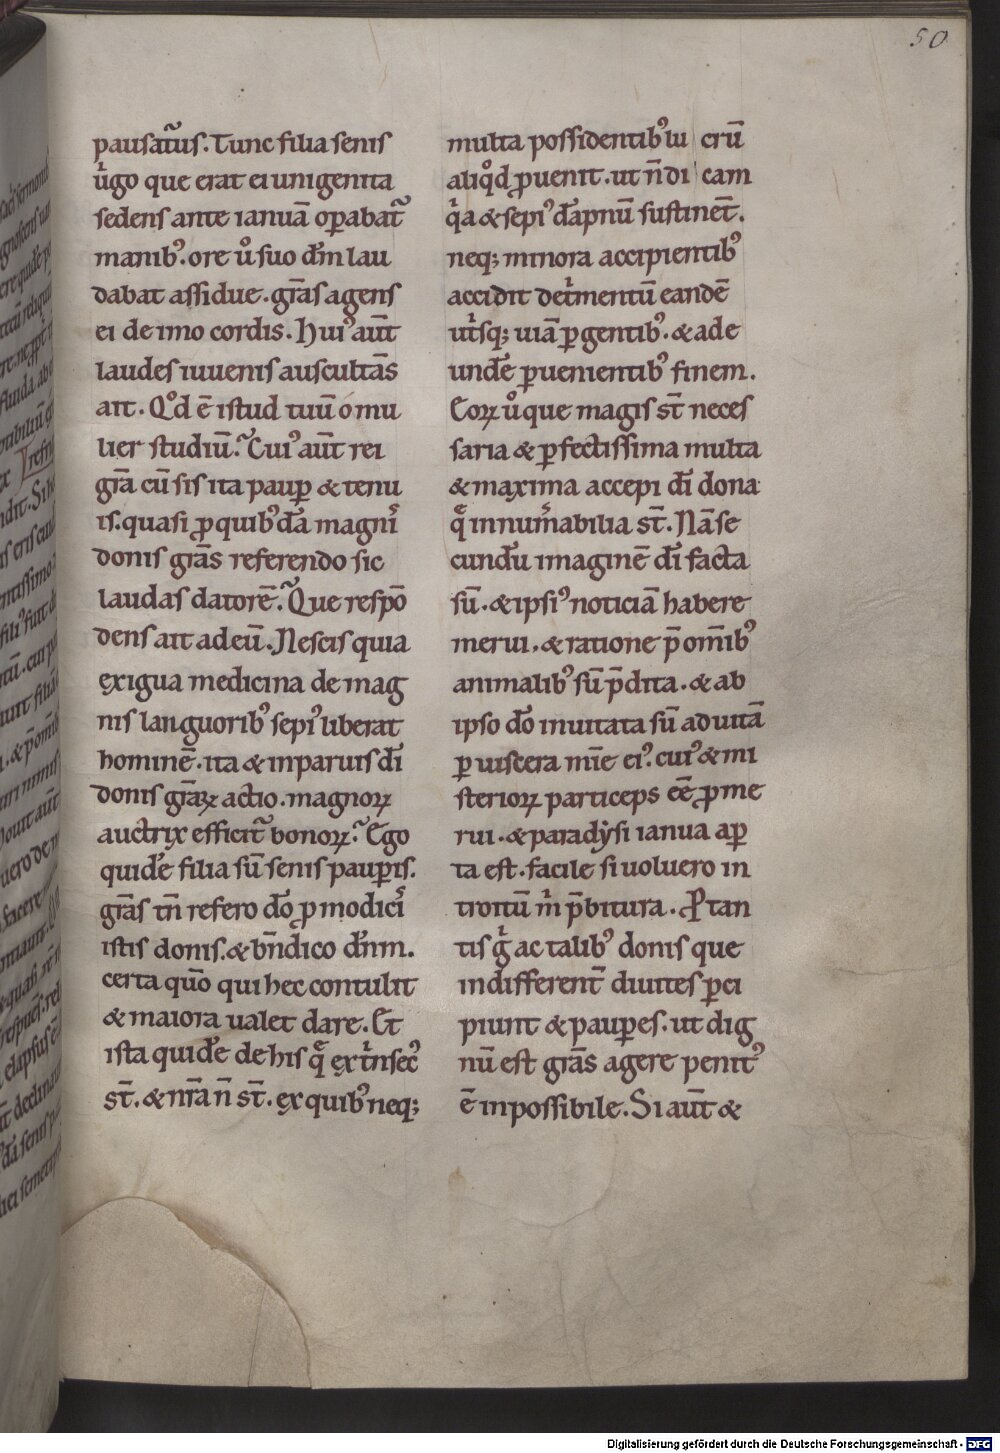 50
pausat᷑us. Tunc filia senis
uͥgo que erat ei unigenita
sedens ante ianuā oꝑabat᷑
manibꝰ. ore uͦ suo dn̄m lau
dabat assidue. grās agens
ei de imo cordis. Huiꝰ aut̄
laudes iuuenis auscultās
ait. Qͦd ē istud tuū o mu
lier studiū? Cuiꝰ aut̄ rei
grā cū sis ita pauꝑ & tenu
is. quasi ꝓ quibꝰdā magnͥ
donis grās referendo sic
laudas datorē? Que respō
dens ait ad eū. Nescis quia
exigua medicina de mag
nis languoribꝰ sepiꝰ liberat
hominē. ita & in paruis dī
donis grāꝝ actio. magnoꝝ
auctrix efficit᷑ bonoꝝ? Ego
quidē filia sū senis pauꝑis.
grās tn̄ refero dō ꝓ modicͥ
istis donis. & bn̄dico dn̄m.
certa quō qui hec contulit
& maiora ualet dare. Et
ista quidē de his q̄ extͥnsecꝰ
st̄. & nr̄a n̄ st̄. ex quibꝰ neq;
multa possidentibꝰ lu crū
aliqͦd ꝓuenit. ut n̄ di cam
qͥa & sepiꝰ dāpnū sustinet̄.
neq; minora accipientibꝰ
accidit detͥmentū eandē
utͥsq; uiā ꝑgentibꝰ. & ade
undē ꝑuenientibꝰ finem.
Eoꝝ uͦ que magis st̄ neces
saria & ꝑfectissima multa
& maxima accepi dī dona
q̄ innum̄abilia st̄. Nā se
cundū imaginē dī facta
sū. & ipsiꝰ noticiā habere
merui. & ratione p̄ om̄ibꝰ
animalibꝰ sū p̄dita. & ab
ipso dō inuitata sū ad uitā
ꝑ uiscera mīe eiꝰ. cuiꝰ & mi
sterioꝝ particeps eē ꝓme
rui. & paradẏsi ianua aꝑ
ta est. facile si uoluero in
troitū mͥ p̄bitura. Ꝓ tan
tis gͥ ac talibꝰ donis que
indifferent̄ diuites ꝑci
piunt & pauꝑes. ut dig
nū est grās agere penitꝰ
ē inpossibile. Si aut̄ &
Digitalisierung gefördert durch die Deutsche Forschungsgemeinschaft - DFG